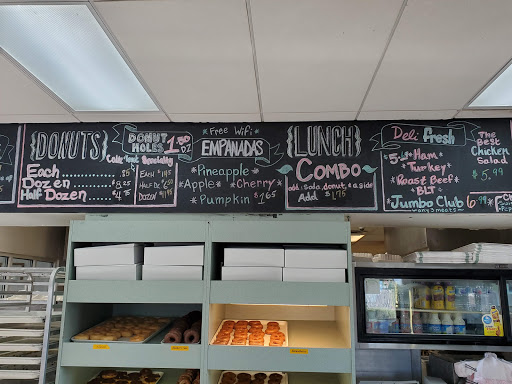 DONUTS
Each .85
Dozen $8.25
Half Dozen $4.75
DONUT HOLES 1.50 DZ
Specialty
EACH $1.45
HALF DZ
DOZEN
*Free Wifi*
EMPANADAS
*Pineapple*
*Apple* *Cherry*
*Pumpkin $1.65
{LUNCH}
Combo
add: soda, donut, & a side
Add $1.75
Deli fresh
Ham*
*Turkey
*Roast Beef*
BLT
*Jumbo Club
any 3 meats
THE BEST
Chicken
Salad
$5.99